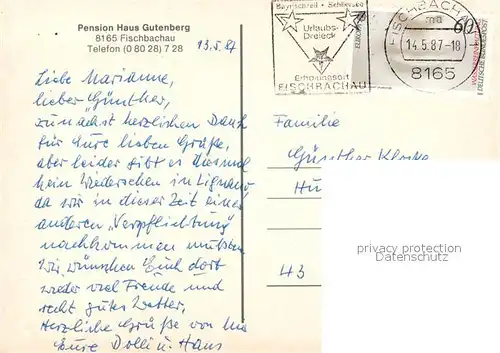 Pension Haus Gutenberg
8165 Fischbachau
Telefon (0 80 28) 7 28
13.5.87
Liebe Marianne,
lieber Günther,
zunächst herzlichen Dank
für Eure lieben Grüße,
aber leider gibt es diesmal
kein Wiedersehen in Lignano
da wir in dieser Zeit einer
anderen "Verpflichtung"
nachkommen müssen.
Wir wünschen Euch dort
wieder viel Freude und
recht gutes Wetter.
Herzliche Grüße von
Eure Dolli u. Hans
Bayrischzell · Schliersee
Urlaubs-
Dreieck
Erholungsort
FISCHBACHAU
FISCHBACHAU
ma
14.5.87-18
8165
60
DEUTSCHE BUNDESPOST
Familie
Günther
43
privacy protection
Datenschutz